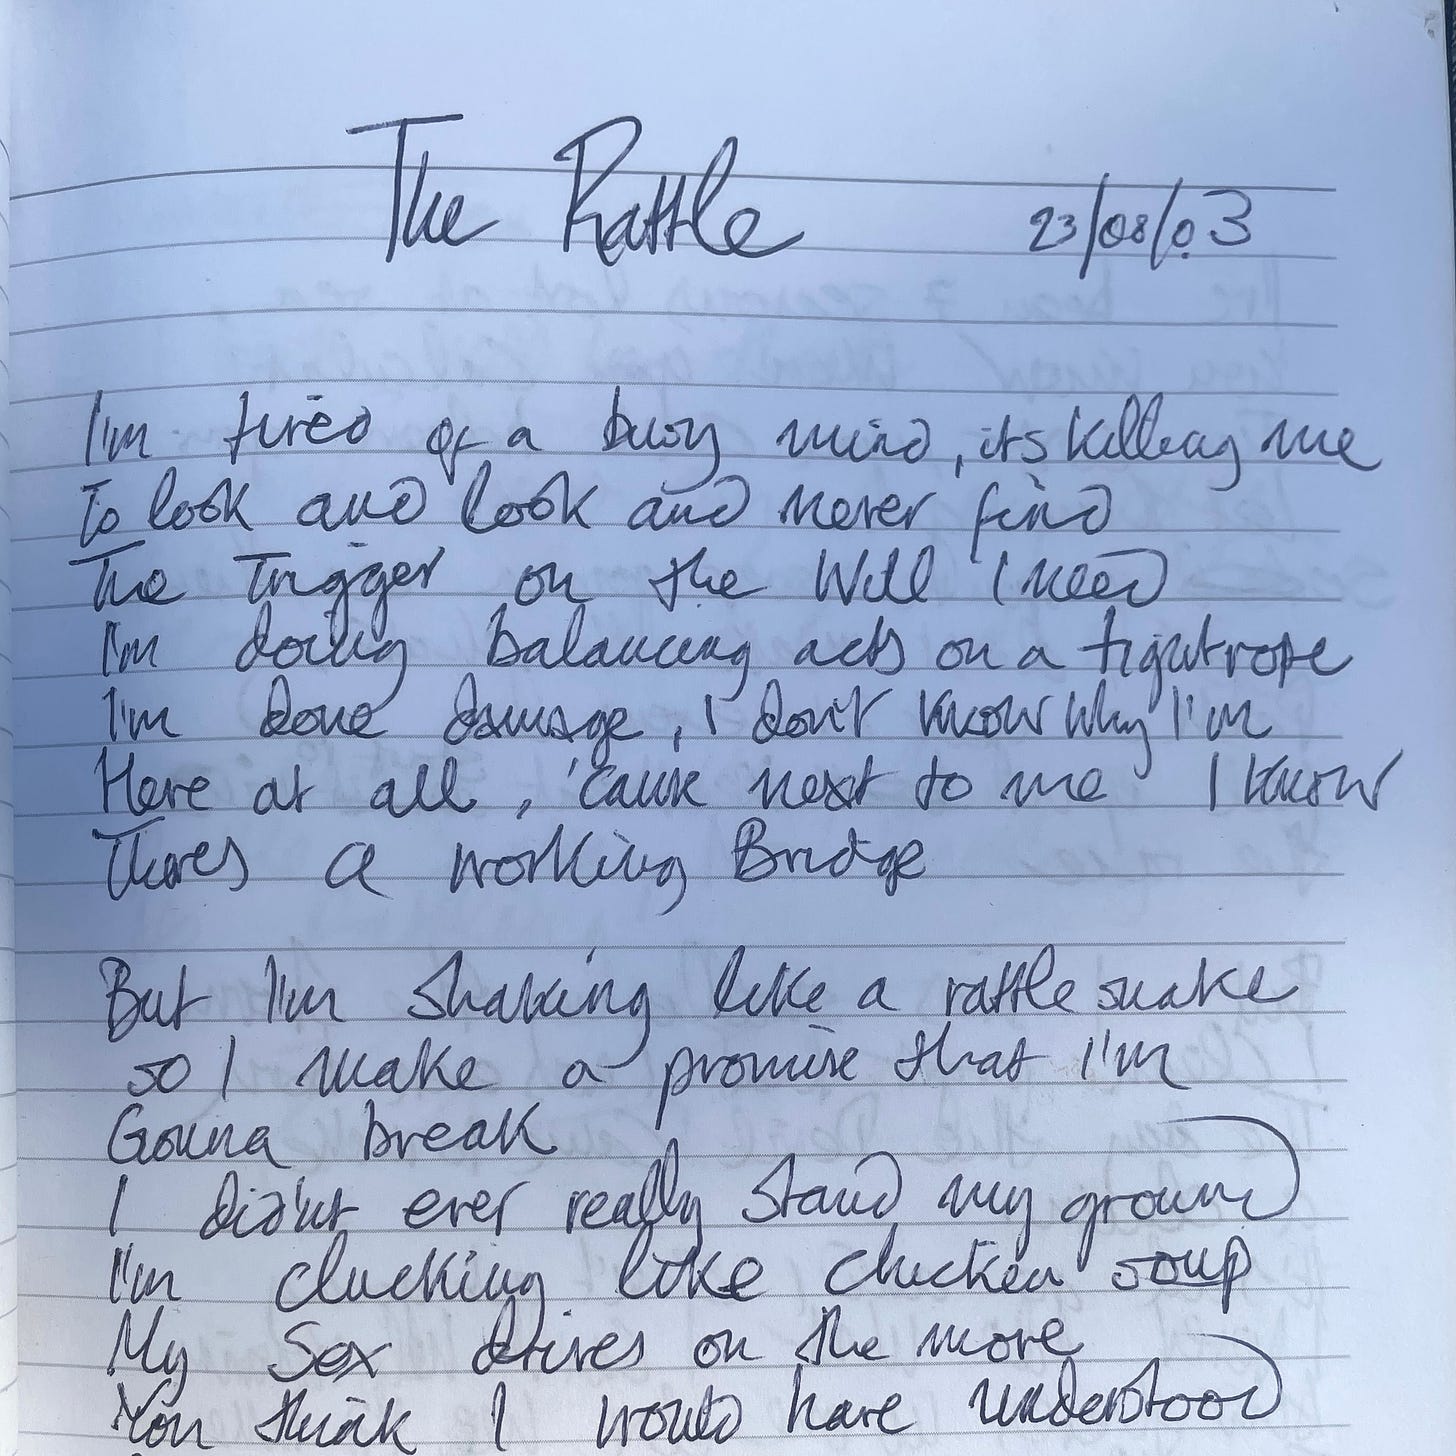 The Rattle 23/08/03
I'm tired of a busy mind, its killing me
To look and look and never find
The Trigger on the Will I need
I'm doing balancing acts on a tightrope
I'm done damage, I don't know why I'm
Here at all, 'cause next to me I know
Theres a working Bridge
But I'm shaking like a rattle snake
so I make a promise that I'm
Gonna break
I didn't ever really stand my ground
I'm clucking like chicken soup
My Sex drives on the more
You think I would have understood